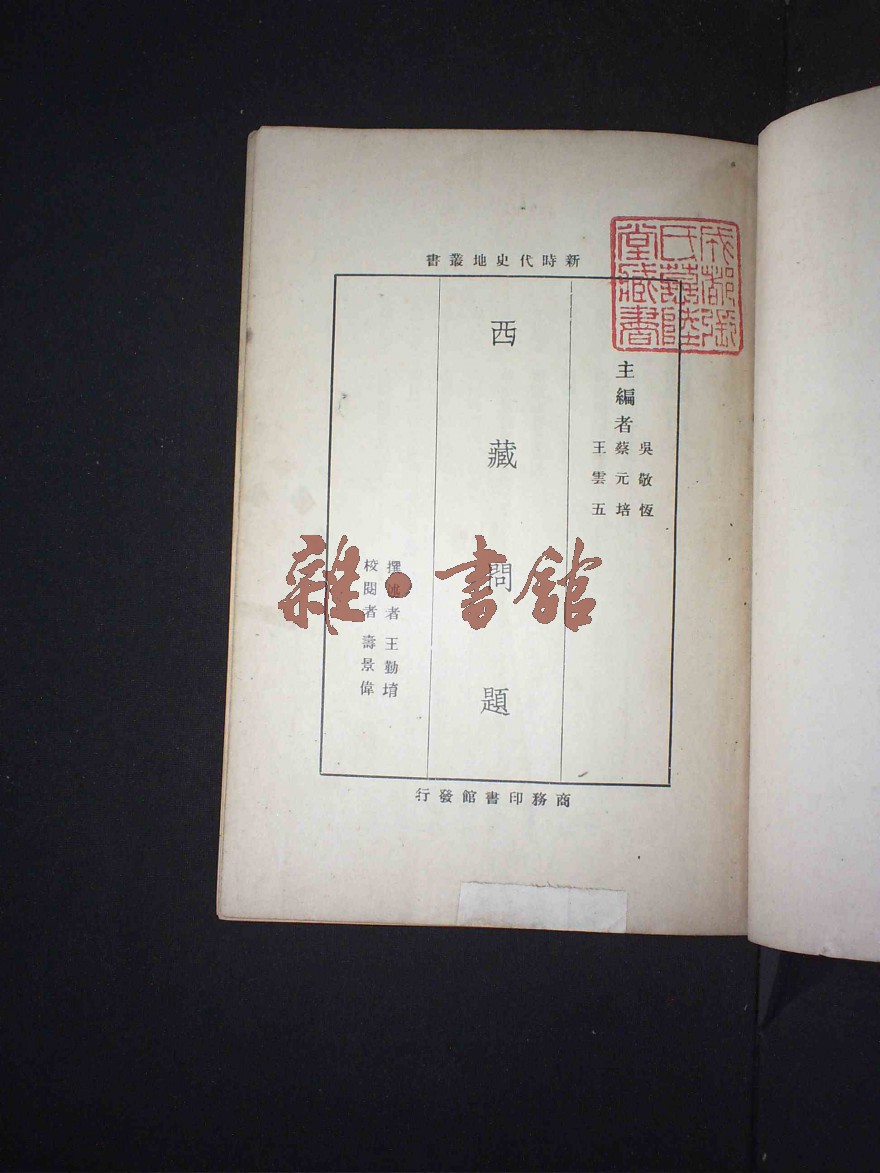 新時代史地叢書
主編者
吳敬恆
蔡元培
王雲五
西藏問題
撰述者 王勤堉
校閱者 壽景偉
商務印書館發行
成都張
氏
堂藏書
雜·書館